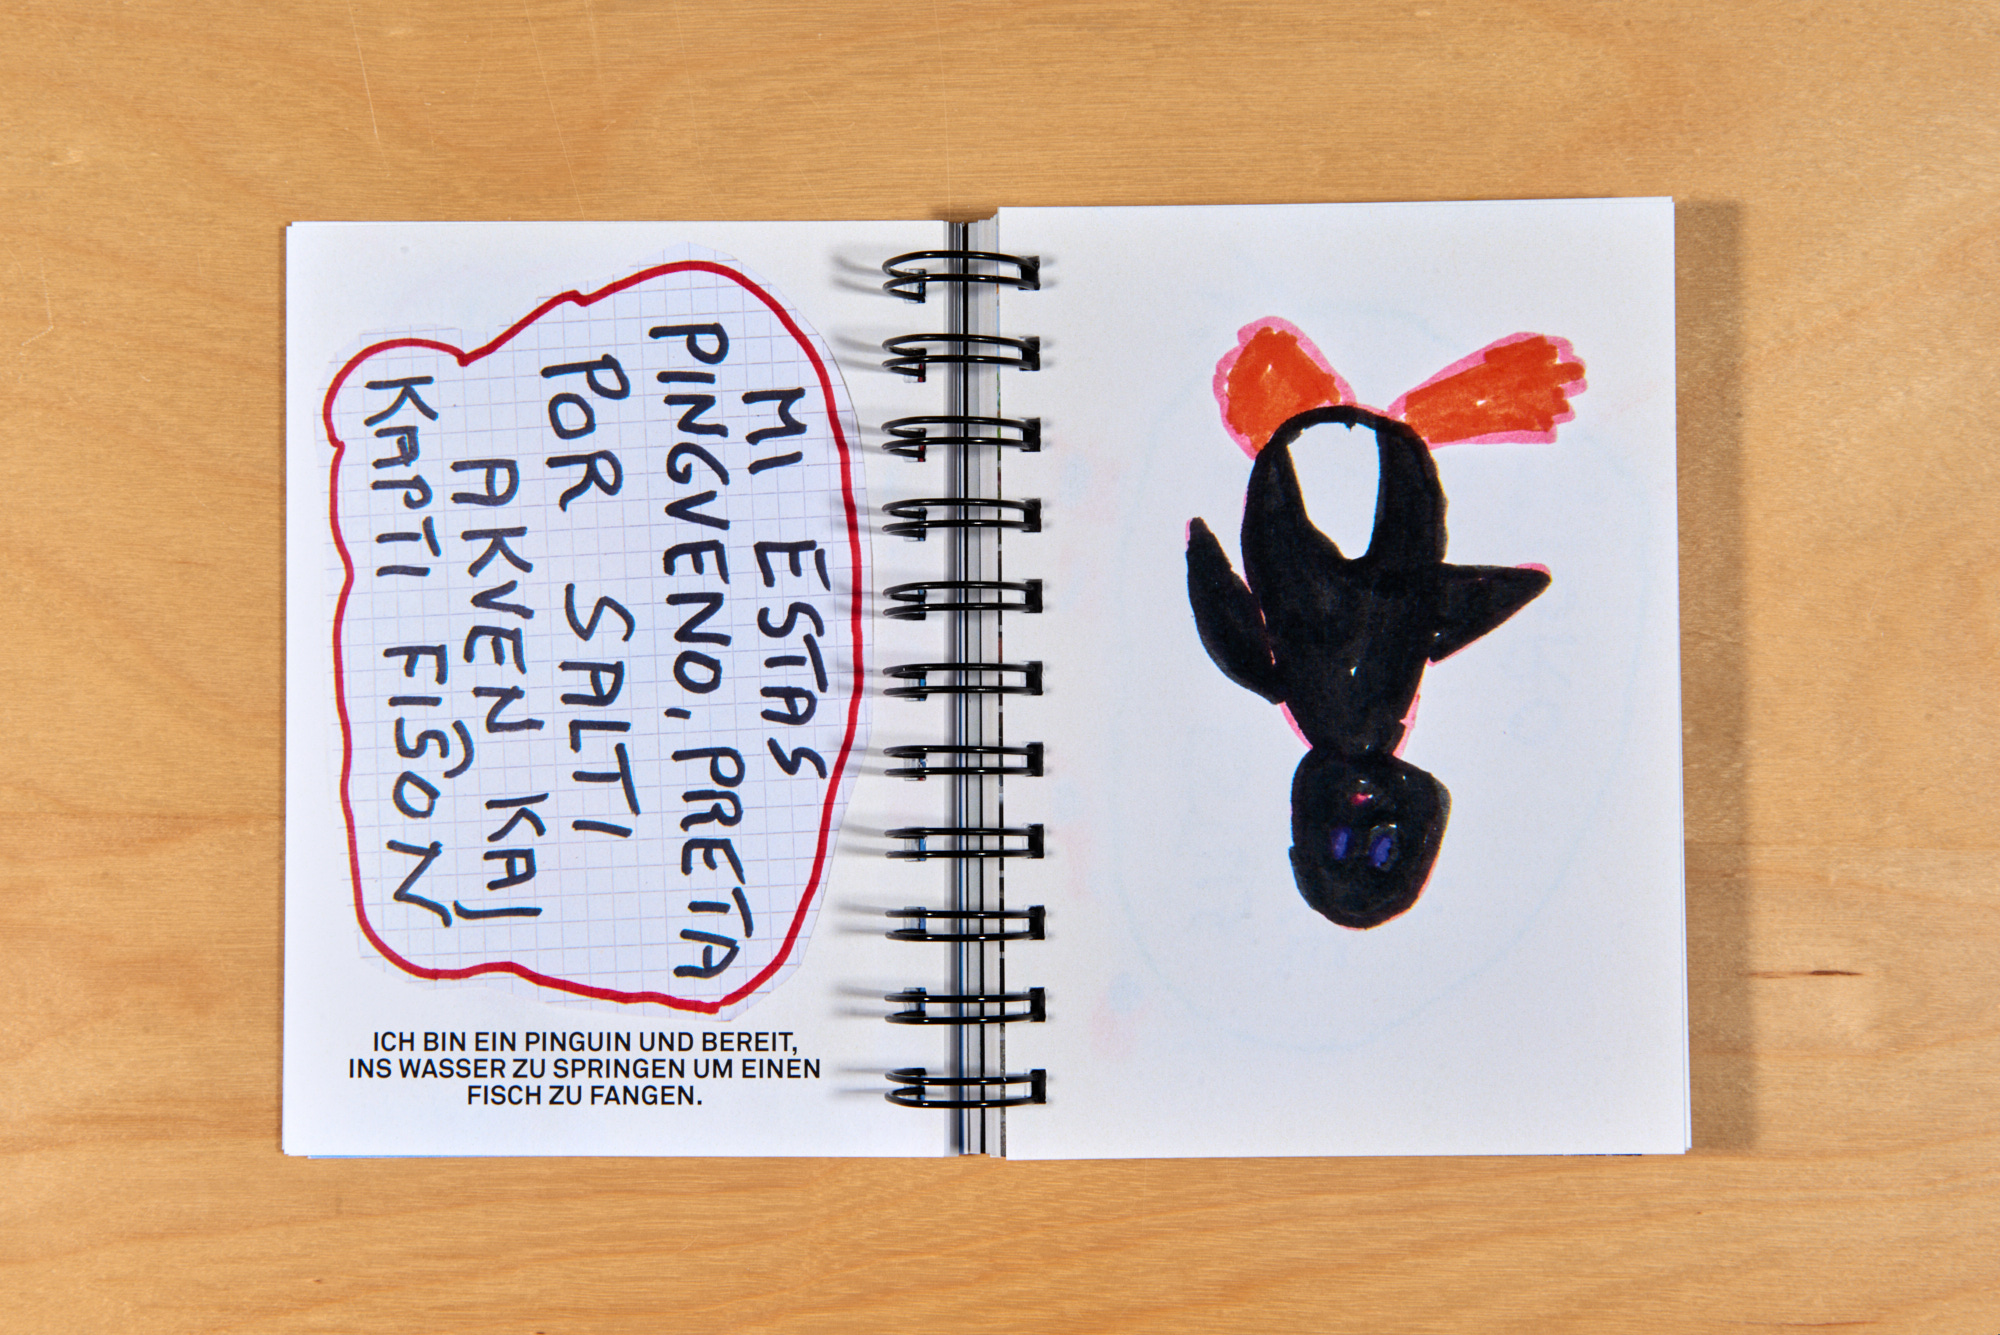 MI ESTAS
PINGVENO, PRETA
POR SALTI
AKVEN KAJ
KAPTI FIŜON
ICH BIN EIN PINGUIN UND BEREIT,
INS WASSER ZU SPRINGEN UM EINEN
FISCH ZU FANGEN.